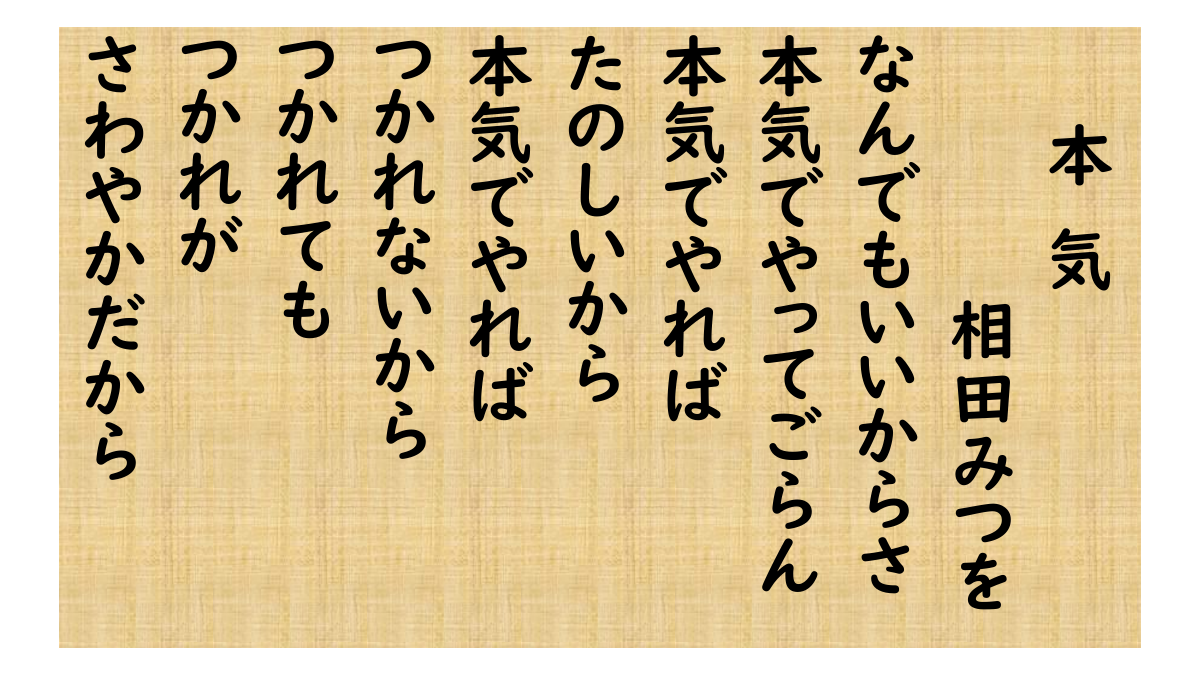 本気
相田みつを
なんでもいいからさ
本気でやってごらん
本気でやれば
たのしいから
本気でやれば
つかれないから
つかれても
つかれが
さわやかだから